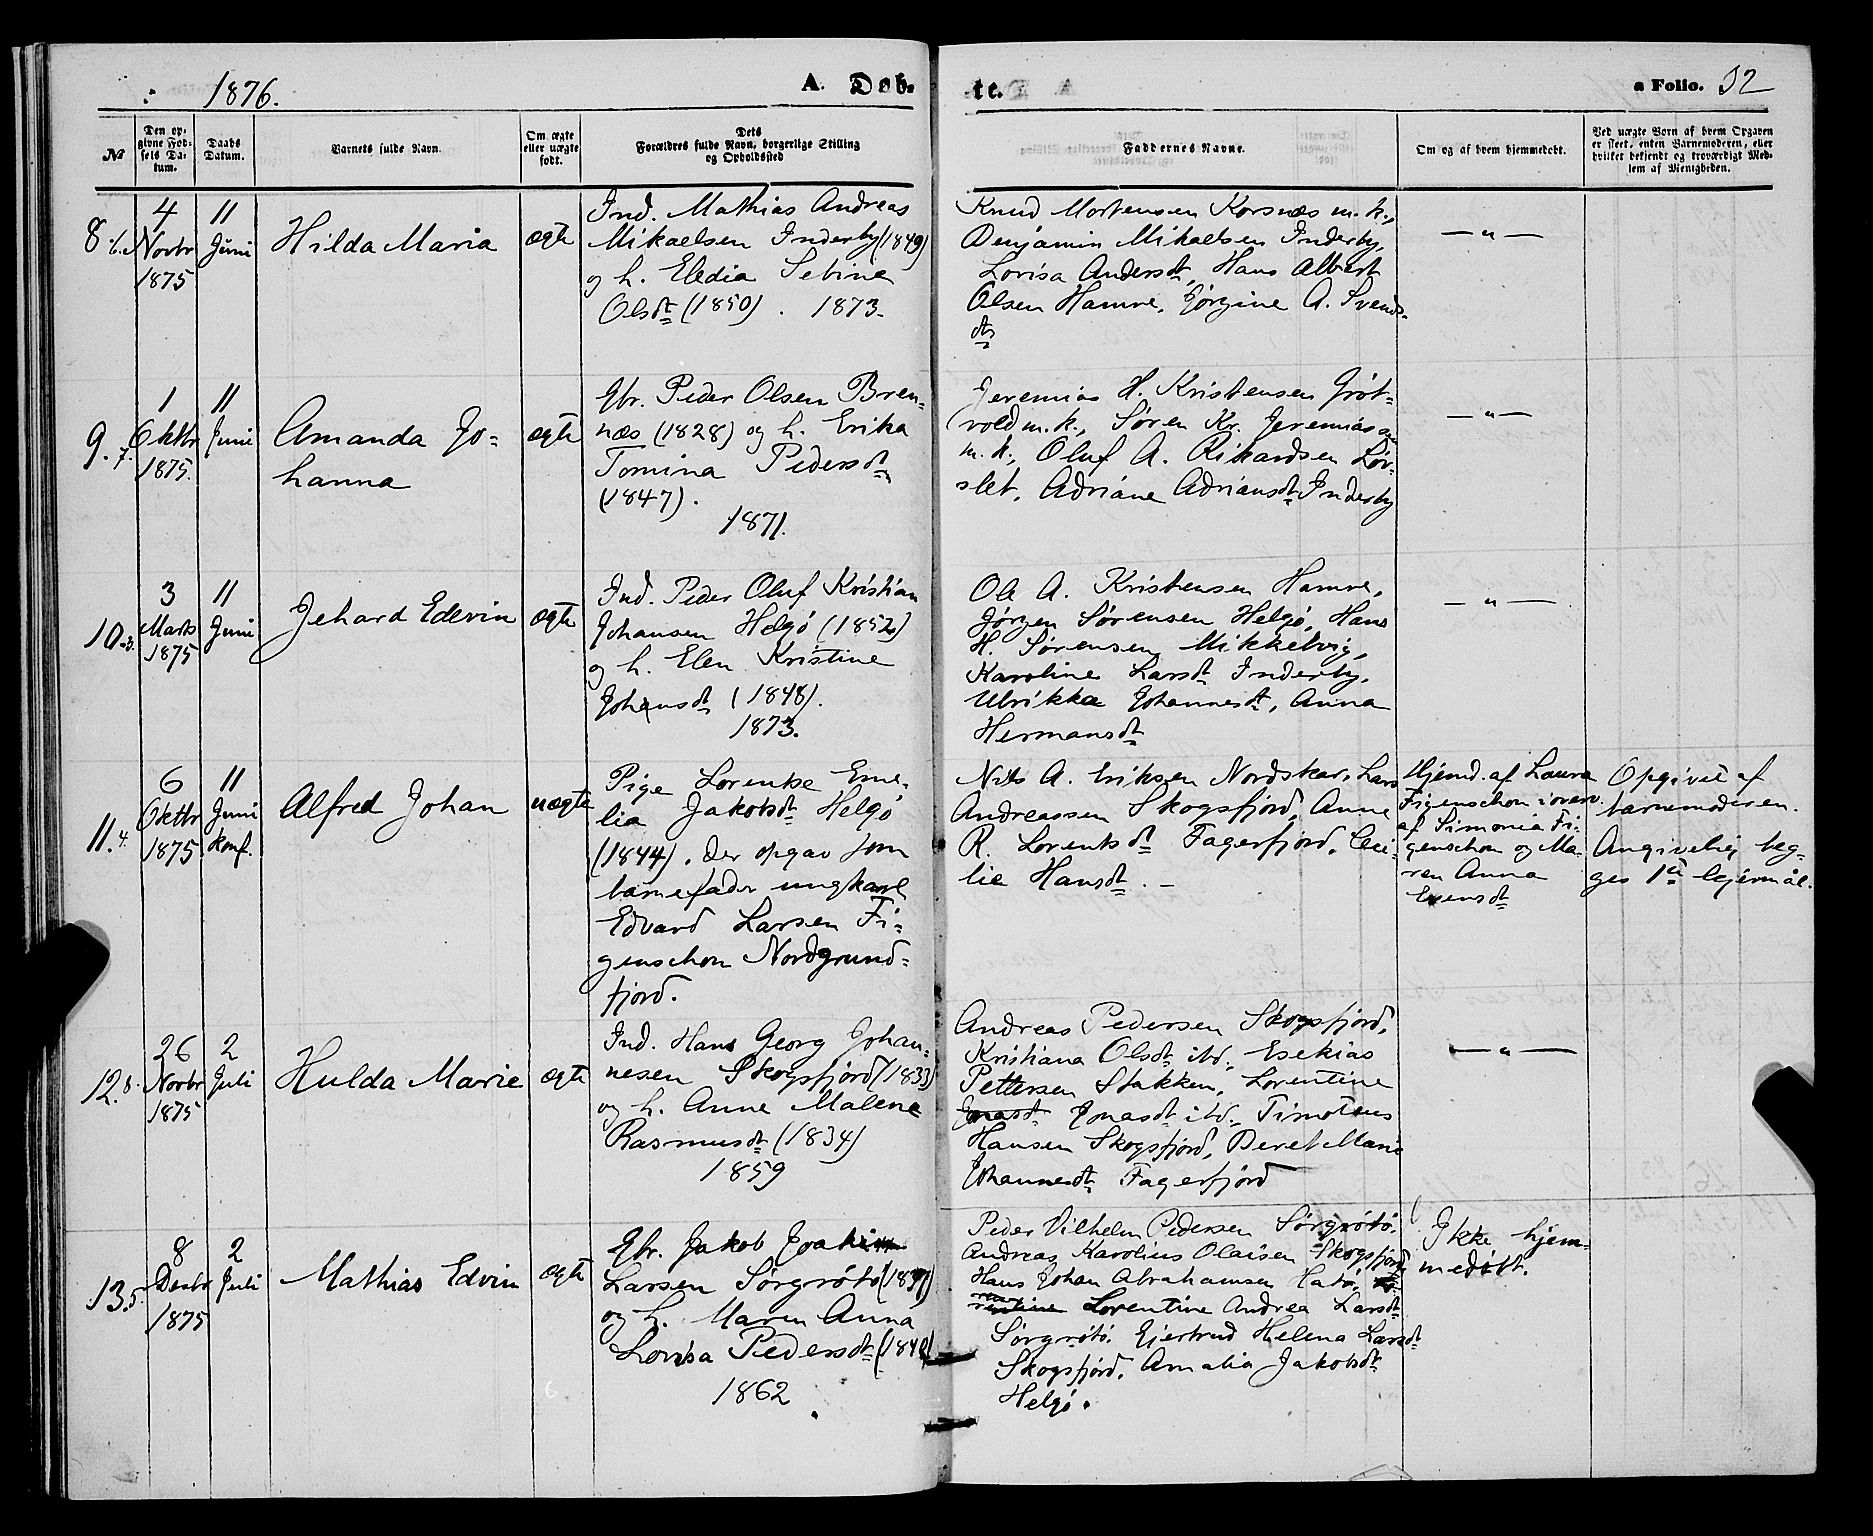 1876.
A. Døb-
te.
a Folio. 32
№
Den op-
givne Fød-
sels Da-
tum.
Daabs
Datum.
Barnets fulde Navn.
Om ægte
eller uægte
født.
Dets
Forældres fulde Navn, borgerlige Stilling
og Opholdssted
Faddernes Navne.
Om og af hvem hjemmedøbt.
Ved uægte Børn af hvem Opgaven
er skeet, enten Barnemoderen, eller
hvilket bekjendt og troværdigt Med-
lem af Menigheden.
8.6.
4
Novbr
1875
11
Juni
Hilda Maria
ægte
Ind. Mathias Andreas
Mikaelsen Inderby (1849)
og h. Eledia Sebine
Olsdt (1850). 1873.
Knud Mortensen Korsnæs m.k.,
Benjamin Mikaelsen Inderby,
Lovisa Andersdt, Hans Albert
Olsen Hamre, Jørgine A. Svends-
dtr
— " —
9.7.
1
Oktbr
1875.
11
Juni
Amanda Jo-
hanna
ægte
Gbr. Peder Olsen Bren-
næs (1828) og h. Erika
Tomina Pedersdt
(1847).
1871.
Jeremias H. Kristensen Grøt-
vold m.k., Søren Kr. Jeremiassen
m.k., Oluf A. Rikardsen Løv-
slet, Adriane Adriansdt Inderby
— " —
10.3.
3
Marts
1875
11
Juni
Jehard Edevin
ægte
Ind. Peder Oluf Kristian
Johansen Helgø (1852)
og h. Elen Kristine
Johansdt (1848).
1873.
Ole A. Kristensen Hamre,
Jørgen Sørensen Helgø, Hans
H. Sørensen Mikkelvig,
Karoline Larsdt Inderby,
Ulrikka Johannesdt, Anna
Hermansdt
— " —
11.4.
6
Oktbr
1875
11
Juni
konf.
Alfred Johan
uægte
Pige Lorentse Eme-
lia Jakobsdt Helgø
(1844). Der opgav som
barnefader ungkarl
Edvard Larsen Fi-
genschou Nordgrund-
fjord.
Nils A. Eriksen Nordskar, Lars
Andreassen Skogsfjord, Anne
R. Lorentsdt Fagerfjord, Ceci-
lie Hansdt. –
Hjemd. af Laura
Figenschou i overv.
af Simonia Fi-
genschou og Ma-
ren Anna
Evensdt
Opgivet af
barnemoderen.
Angivelig beg-
ges 1ste lejermål.
12.8.
26
Novbr
1875
2
Juli
Hulda Marie
ægte
Ind. Hans Georg Johan-
nesen Skogsfjord (1833)
og h. Anne Malene
Rasmusdt (1834)
1859
Andreas Pedersen Skogsfjord,
Kristiana Olsdt ibd., Esekias
Pettersen Stakken, Lorentine
Jonasdt Jonasdt ibd., Timoteus
Hansen Skogsfjord, Beret Marie
Johannesdt Fagerfjord
— " —
13.5.
8
Desbr
1875
2
Juli
Mathias Edvin
ægte
Gbr. Jakob Joakim
Larsen Sørgrøtø (1837)
og h. Maren Anna
Lovisa Pedersdt (1840)
1862
Peder Vilhelm Pedersen Sørgrøtø.
Andreas Karolius Olaisen Skogsfjord,
Hans Johan Abrahamsen
Lorentine Andrea Larsdt
Sørgrøtø. Gjertrud Helena Larsdt
Skogsfjord. Amalia Jakobsdt
Helgø.
Ikke hjem-
medøbt.